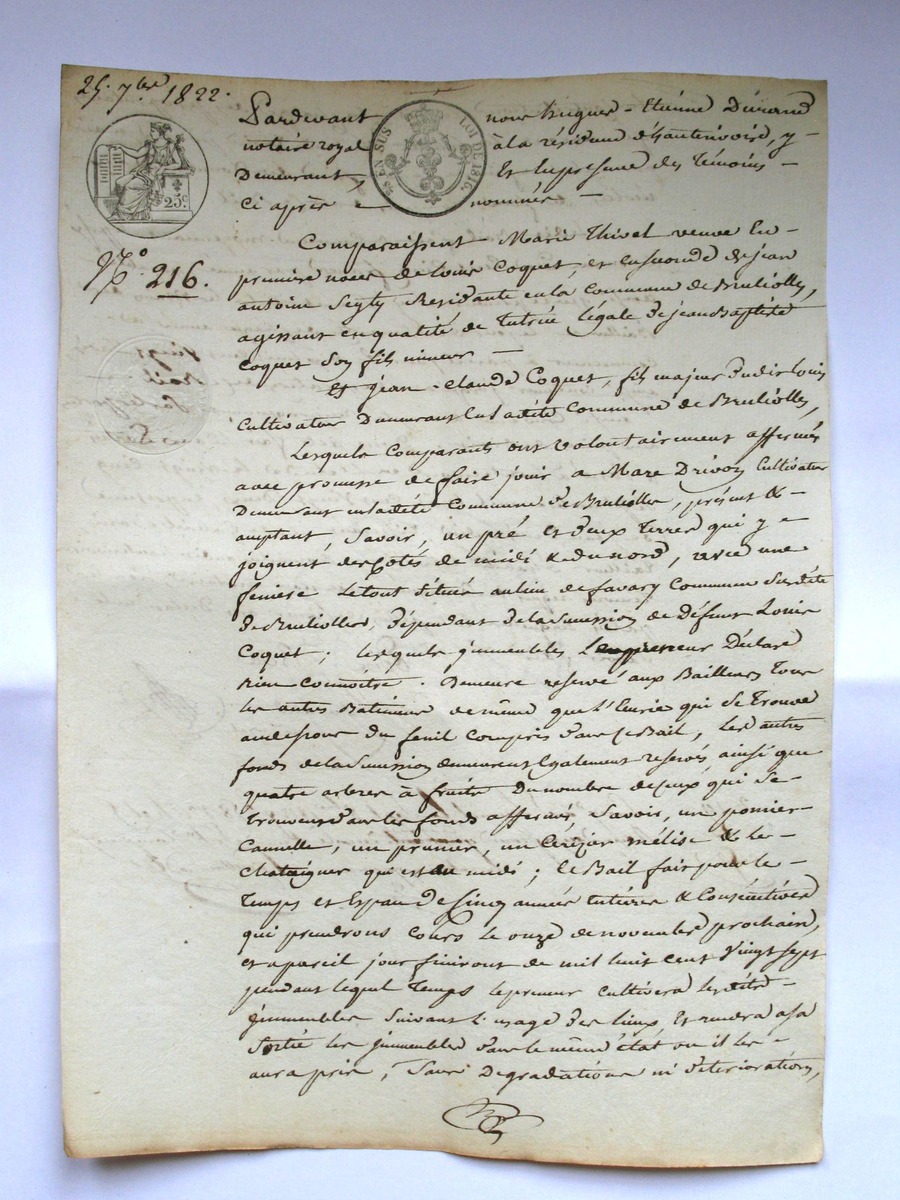 25. 7bre 1822.
Pardevant nous hugues-Etienne Durand
notaire royal à la résidence d'hauterivoire, y
Demeurant, Et en presence des témoins
Ci après nommés
EN SUS LOI DE 1816.
25 c.
N.º 216.
Comparaissent Marie Thivel veuve En
première noces de Louis Coquet, et en seconde de jean
antoine Seyty Residante en la Commune de Brulliolles,
agissant en qualité de tutrice légale de jean Baptiste
Coquet Son fils mineur
Et jean-claude Coquet, fils majeur dudit Louis
Cultivateur Demeurant en ladite Commune de Brulliolles,
Lesquels Comparants ont volontairement affermés
avec promesse de faire jouir a Marc Drivon Cultivateur
Demeurant en ladite Commune de Brulliolles, présent &
acceptant, Savoir, un pré et deux terres qui y
joignent des cotés de midi & du nord, avec une
feniere Le tout Situé au lieu de favary Commune Susdite
de Brulliolles, dépendant de la Succession de Défunt Louis
Coquet; lesquels jmmeubles Le preneur Déclare
bien Connoitre. Demeure reservé aux Bailleurs tous
les autres Batiments de même que l'Ecurie qui se trouve
au dessous du fenil compris dans ce Bail, les autres
fonds de la Succession demeurent Egalement reservés ainsi que
quatre arbres à fruits du nombre de ceux qui Se
trouvent dans les fonds affermés, Savoir, un pomier
Cannelle, un prunier, un Cerizier mélise & le
chataigner qui est au midi; le Bail fait pour le
temps et Espace de Cinq années Entières & Consécutives
qui prendront cours le onze de novembre prochain,
et a pareil jour finiront de mil huit cent vingt sept
pendant lequel temps le preneur cultivera lesdits
jmmeubles Suivant l'usage des lieux, Et rendra a sa
Sortie les jmmeubles dans le même état ou il les
aura pris, Sans Dégradations ni deteriorations,